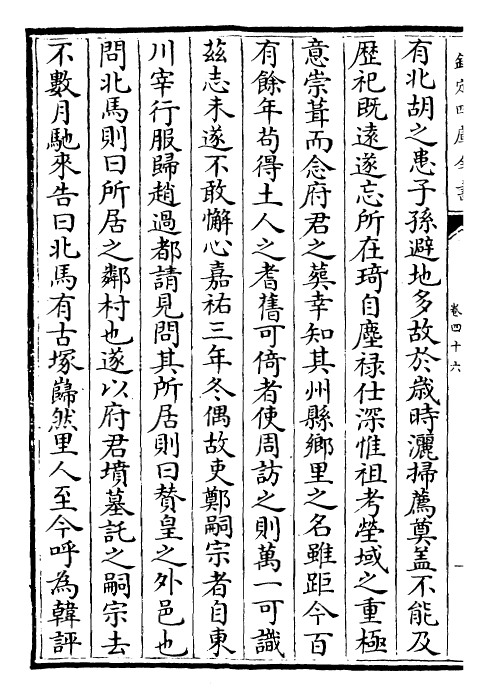 有北胡之患子孫避地多故於歳時灑掃薦奠盖不能及
歴祀既遠遂忘所在琦自塵禄仕深惟祖考塋域之重極
意崇葺而念府君之葬幸知其州縣鄉里之名雖距今百
有餘年茍得土人之耆舊可倚者使周訪之則萬一可識
兹志未遂不敢懈心嘉祐三年冬偶故吏鄭嗣宗者自東
川宰行服歸趙過都請見問其所居則曰賛皇之外邑也
問北馬則曰所居之鄰村也遂以府君墳墓託之嗣宗去
不數月馳來告曰北馬有古塚巋然里人至今呼為韓評
欽定四庫全書
卷四十六